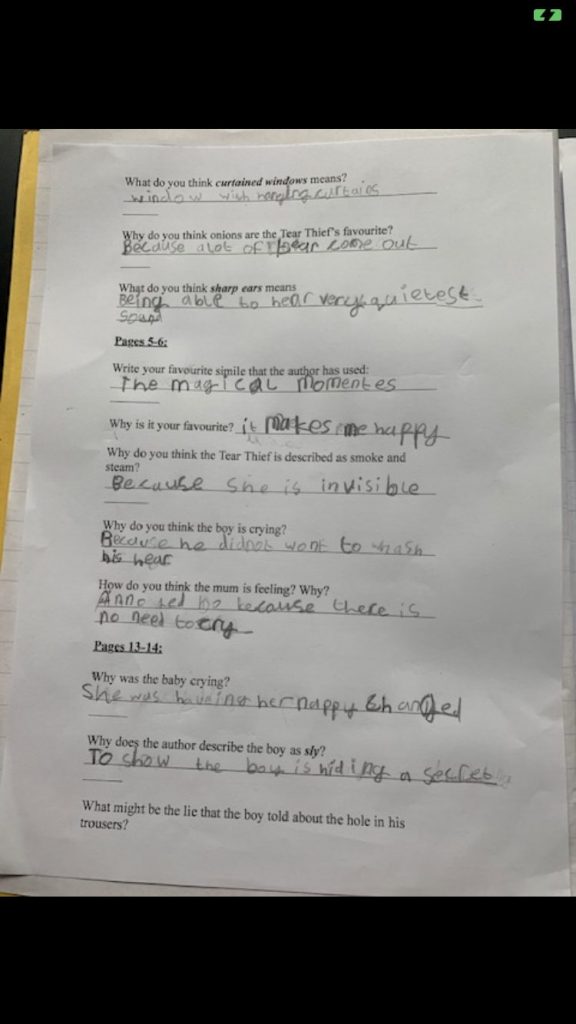 What do you think curtained windows means?
window with hanging curtains
Why do you think onions are the Tear Thief's favourite?
Because alot of tear come out
What do you think sharp ears means
Being able to hear very quietest
sound
Pages 5-6:
Write your favourite simile that the author has used:
The magical momentes
Why is it your favourite? it makes me happy
Why do you think the Tear Thief is described as smoke and
steam?
Because she is invisible
Why do you think the boy is crying?
Because he didnot wont to whash
his hear
How do you think the mum is feeling? Why?
because there is
no need to cry
Pages 13-14:
Why was the baby crying?
She was her nappy changed
Why does the author describe the boy as sly?
To show the boy is hiding a secret
What might be the lie that the boy told about the hole in his
trousers?